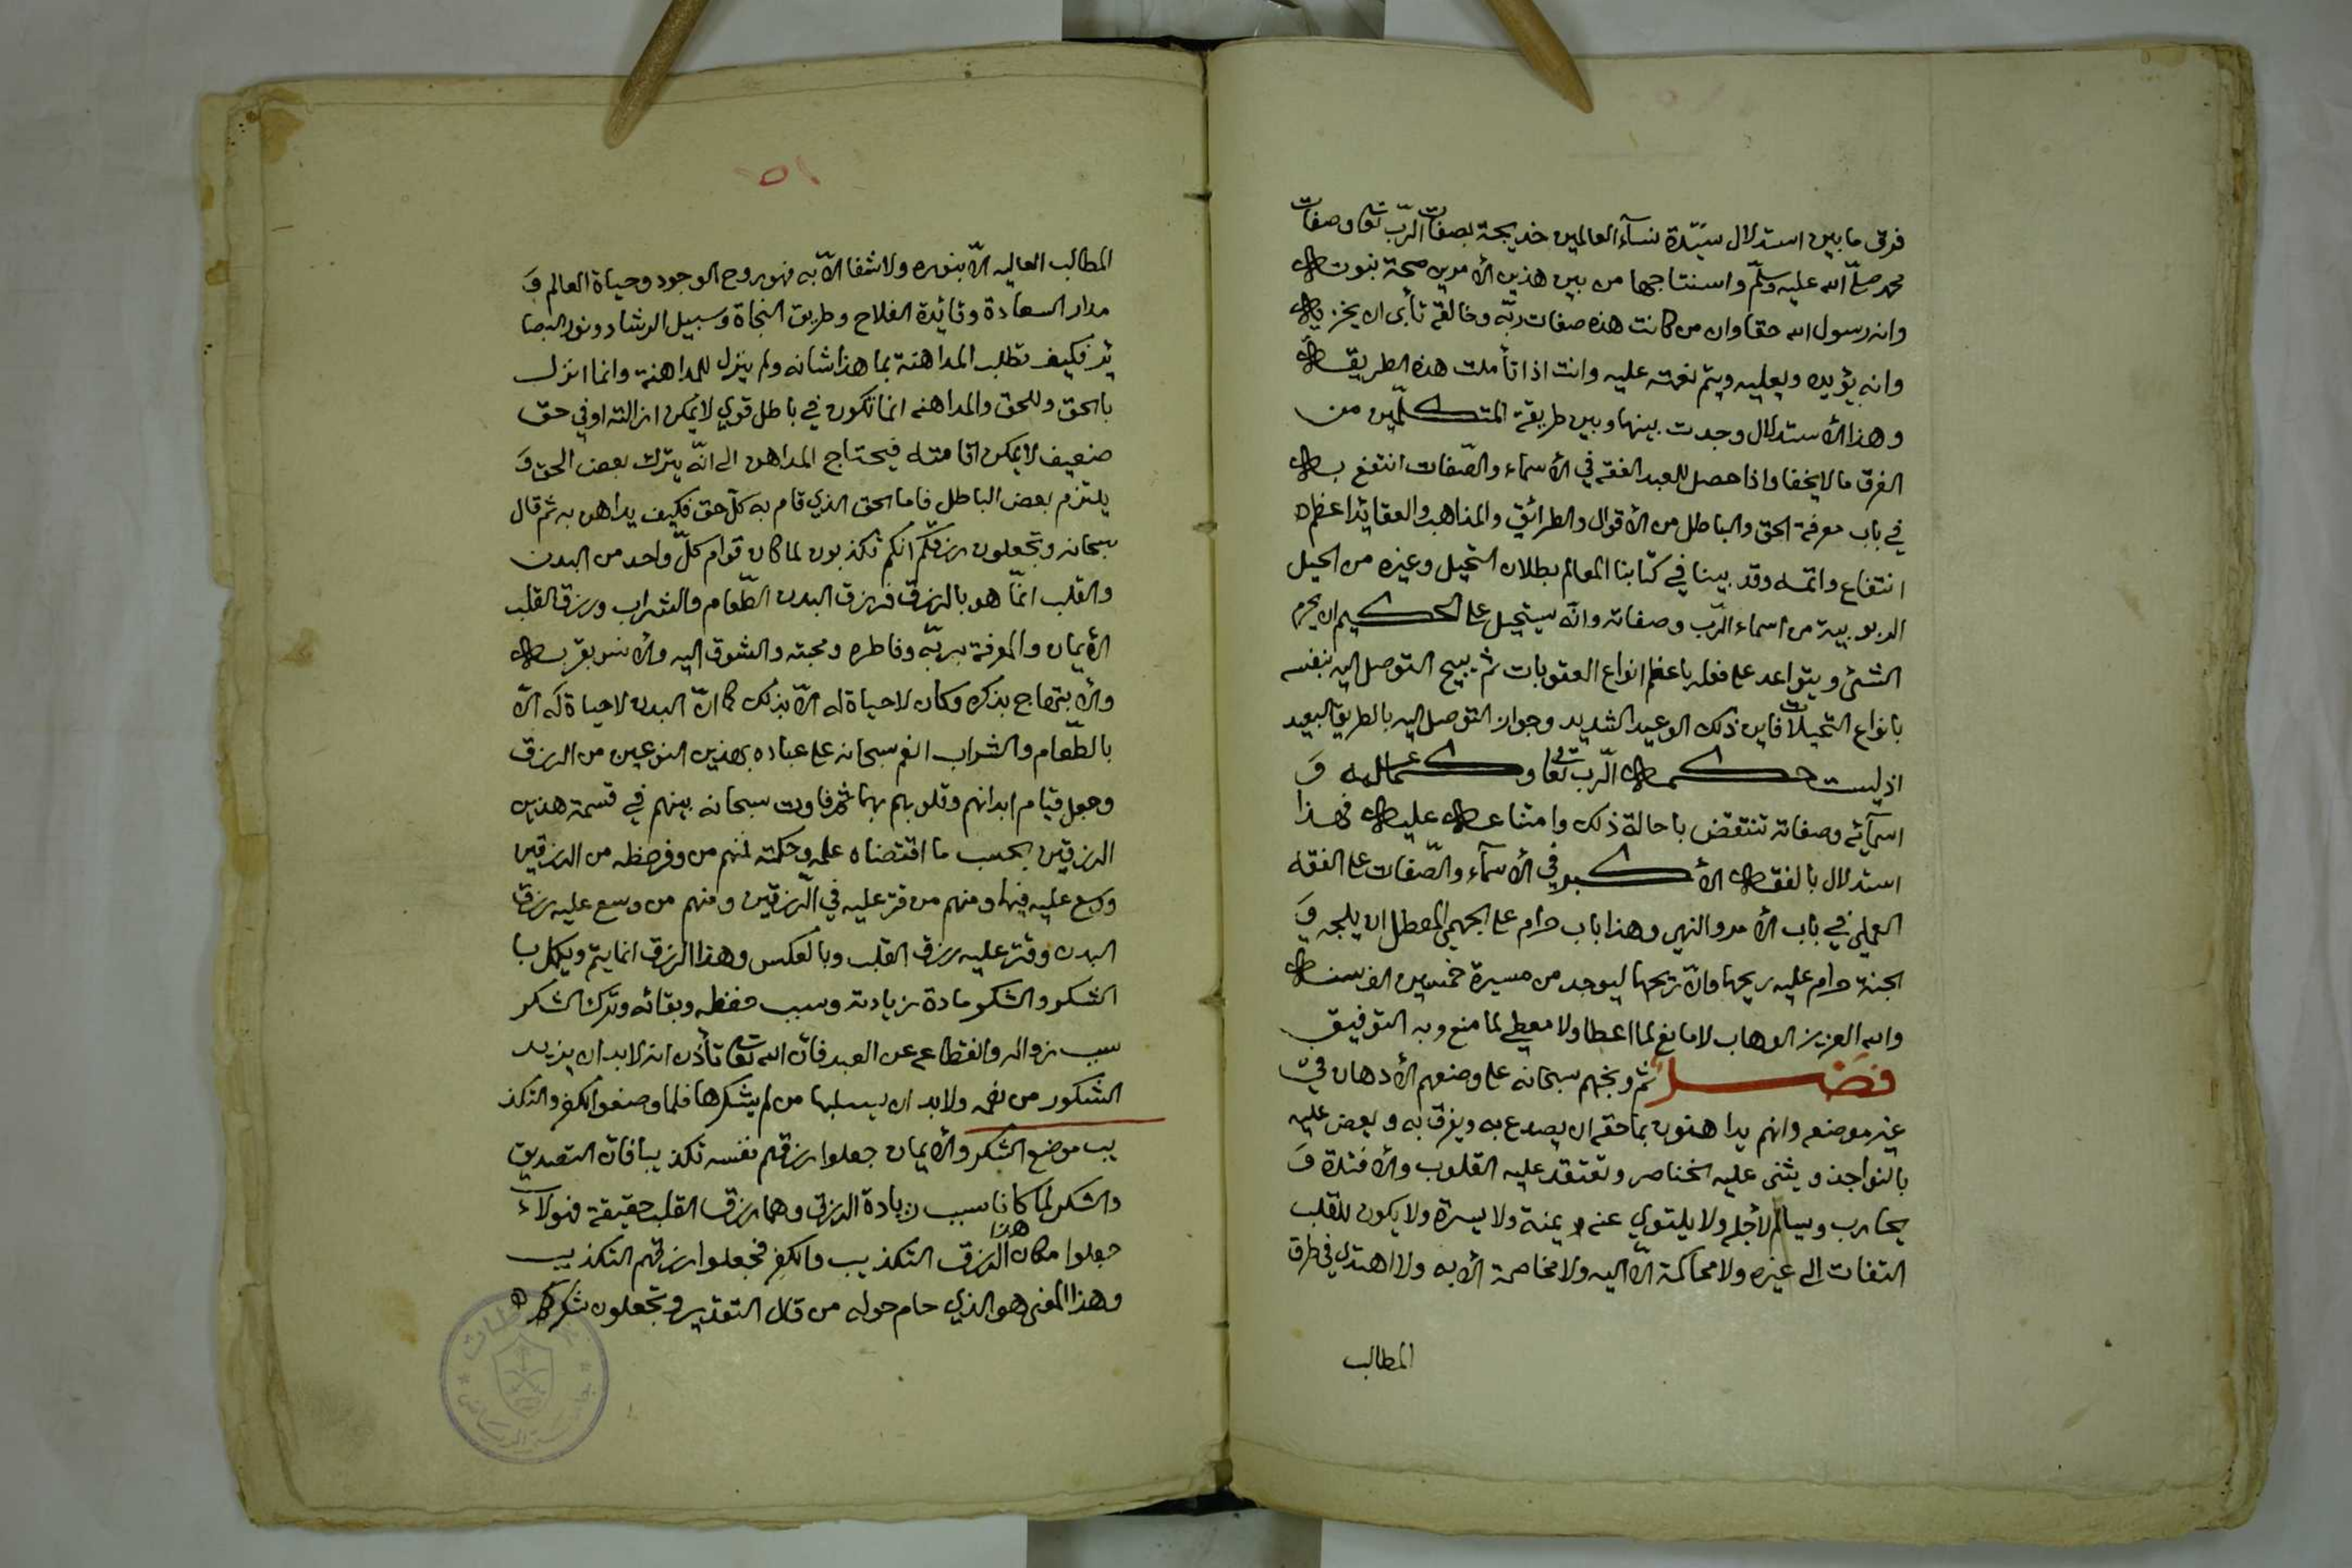 فرق ما بين استدلال سيّدة نسآء العالمين خديجة بصفات الرّبّ تعا وصفات
محمد صلّى الله عليه وسلّم واستنتاجها من بين هذين الأمرين صحة نبوته
وانه رسول الله حقا وان من كانت هذه صفات ربّه وخالقه تأبى ان يخزيه
وانه يؤيده ويعليه ويتمّ نعمته عليه وانت اذا تأملت هذه الطريقة
وهذا الأستدلال وجدت بينها وبين طريقة المتكلّمين من
الفرق ما لا يخفا واذا حصل للعبد الفقه في الأسماء والصّفات انتفع به
في باب معرفة الحق والباطل من الأقوال والطرائق والمذاهب والعقايد اعظم
انتفاع واتمه وقد بينا في كتابنا المعالم بطلان التحيل وغيره من الحيل
الربوبية من اسماء الرّبّ وصفاته وانّه يستحيل على الحكيم ان يحرم
الشئ ويتواعد على فعله باعظم انواع العقوبات ثم يبيح التوصل اليه بنفسه
بانواع التحيلات فاين ذلك الوعيد الشديد وجواز التوصل اليه بالطريق البعيد
اذ ليست حكمة الرّب تعا وكماله و
اسمآئه وصفاته تنتقض باحالة ذلك وامتناعه عليه فهذا
استدلال بالفقه الأكبر في الأسمآء والصّفات على الفقه
العملي في باب الأمر والنهي وهذا باب حرام على الجهمي المعطل ان يلجه وَ
الجنة حرام عليه ريحها وانّ ريحها ليوجد من مسيرة خمسين الف سنة
والله العزيز الوهاب لا مانع لما اعطا ولا معطي لما منع وبه التوفيق
فصل ثم وبخهم سبحانه على وضعهم الأدهان فيّ
غير موضعه وانهم يداهنون بما حقه ان يصدع به ويفرق به ويعض عليه
بالنواجذ ويثنى عليه الخناصر وتعتقد عليه القلوب والأفئدة وَ
يحارب ويسالم لأجله ولا يلتوي عنه يمنة ولا يسرة ولا يكون للقلب
التفات الى غيره ولا محاكمة الّا اليه ولا مخاصمة الأ به ولا اهتدي في طرق
المطالب
٥١
المطالب العاليه الأ بنوره ولا شفا الأ به فهو روح الوجود وحياة العالم وَ
مدار السعادة وقائدة الفلاح وطريق النجاة وسبيل الرشاد ونور البصا
ئر فكيف تطلب المداهنة بما هذا شانه ولم ينزل للمداهنة وانما انزل
بالحق وللحق والمداهنه انما تكون في باطل قوي لا يمكن ازالته او في حق
ضعيف لا يمكن اقامته فيحتاج المداهن الى انّه يترك بعض الحق وَ
يلتزم بعض الباطل فاما الحق الذي قام به كلّ حق فكيف يداهن به ثم قال
سبحانه وتجعلون رزقكم انكم تكذبون لما كان قوام كلّ واحد من البدن
والقلب انمّا هو بالرزق فرزق البدن الطّعام والشراب ورزق القلب
الأيمان والمعرفة بربّه وفاطره ومحبته والشوق اليه والأنس بقربه
والأبتهاج بذكره وكان لا حياة له الأ بذلك كما انّ البدن لا حياة له الأ
بالطّعام والشراب انعم سبحانه على عباده بهذين النوعين من الرزق
وجعل قيام ابدانهم وقلوبهم بهما ثم فاوت سبحانه بينهم في قسمة هذين
الرزقين بحسب ما اقتضاه علمه وحكمته فمنهم من وفر حظه من الرزقين
ووسع عليه فيها ومنهم من قتر عليه في الرّزقين ومنهم من وسع عليه رزق
البدن وقتر عليه رزق القلب وبالعكس وهذا الرزق انما يتم ويكمل با
الشكر والشكر مادة زيادته وسبب حفظه وبقائه وترك الشكر
سبب زواله وانقطاعه عن العبد فانّ الله تعا تأذن انه لا بد ان يزيد
الشكور من نعمه ولا بد ان يسلبها من لم يشكرها فلما وضعوا الكفر والتكذ
يب موضع الشكر والأيمان جعلوا رزقهم نفسه تكذيبا فان التصديق
والشكر لما كانا سبب زيادة الرزق وهما رزق القلب حقيقة فهولآء
جعلوا مكان هذا الرزق التكذيب والكفر فجعلوا رزقهم التكذيب
وهذا المعنى هو الذي حام حوله من قال التقدير وتجعلون شكركم